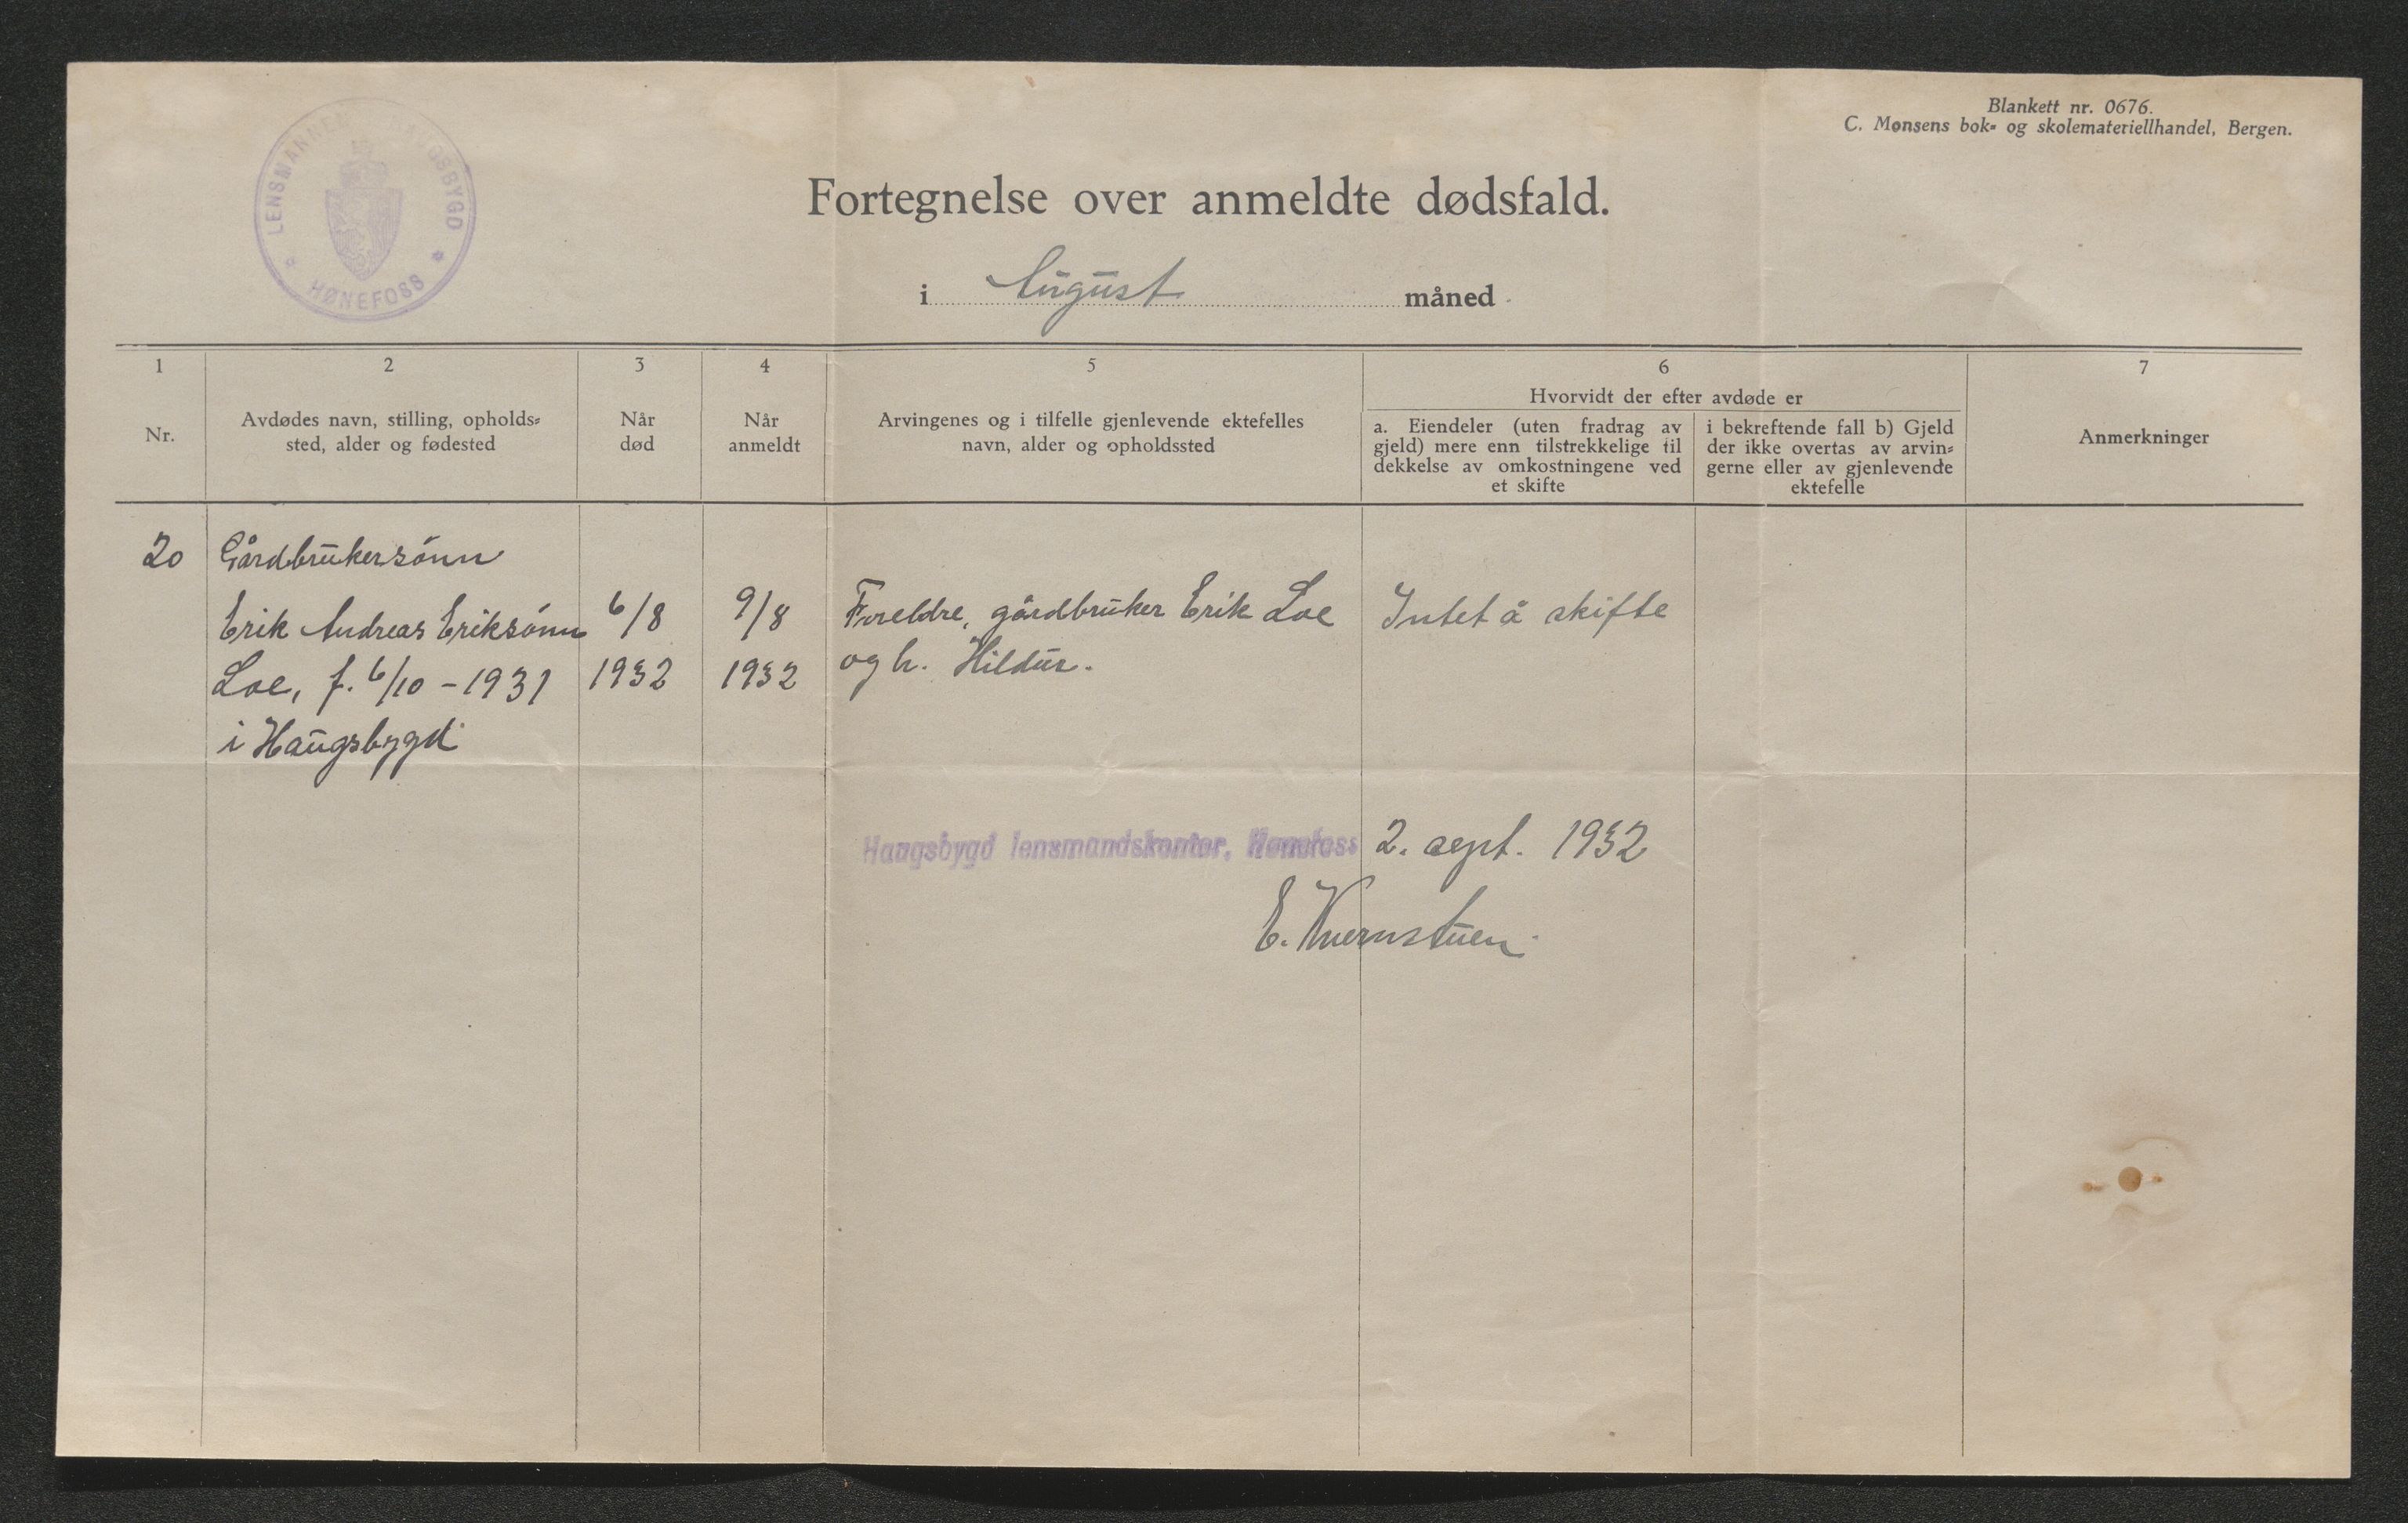 Blankett nr. 0676.
C. Monsens bok- og skolemateriellhandel, Bergen.
LENSMANNEN HAUGSBYGD
* HØNEFOSS *
Fortegnelse over anmeldte dødsfald.
i August måned
1 2 3 4 5 6 7
Nr.
Avdødes navn, stilling, opholds-
sted, alder og fødested
Når
død
Når
anmeldt
Arvingenes og i tilfelle gjenlevende ektefelles
navn, alder og opholdssted
Hvorvidt der efter avdøde er
a. Eiendeler (uten fradrag av
gjeld) mere enn tilstrekkelige til
dekkelse av omkostningene ved
et skifte
i bekreftende fall b) Gjeld
der ikke overtas av arvin-
gerne eller av gjenlevende
ektefelle
Anmerkninger
20
Gårdbrukersønn
Erik Andreas Eriksønn
Loe, f. 6/10 - 1931
i Haugsbygd
6/8
1932
9/8
1932
Foreldre, gårdbruker Erik Loe
og h. Hildur.
Intet å skifte
Haugsbygd lensmandskontor, Hønefoss 2. sept. 1932
E. Kvernstuen